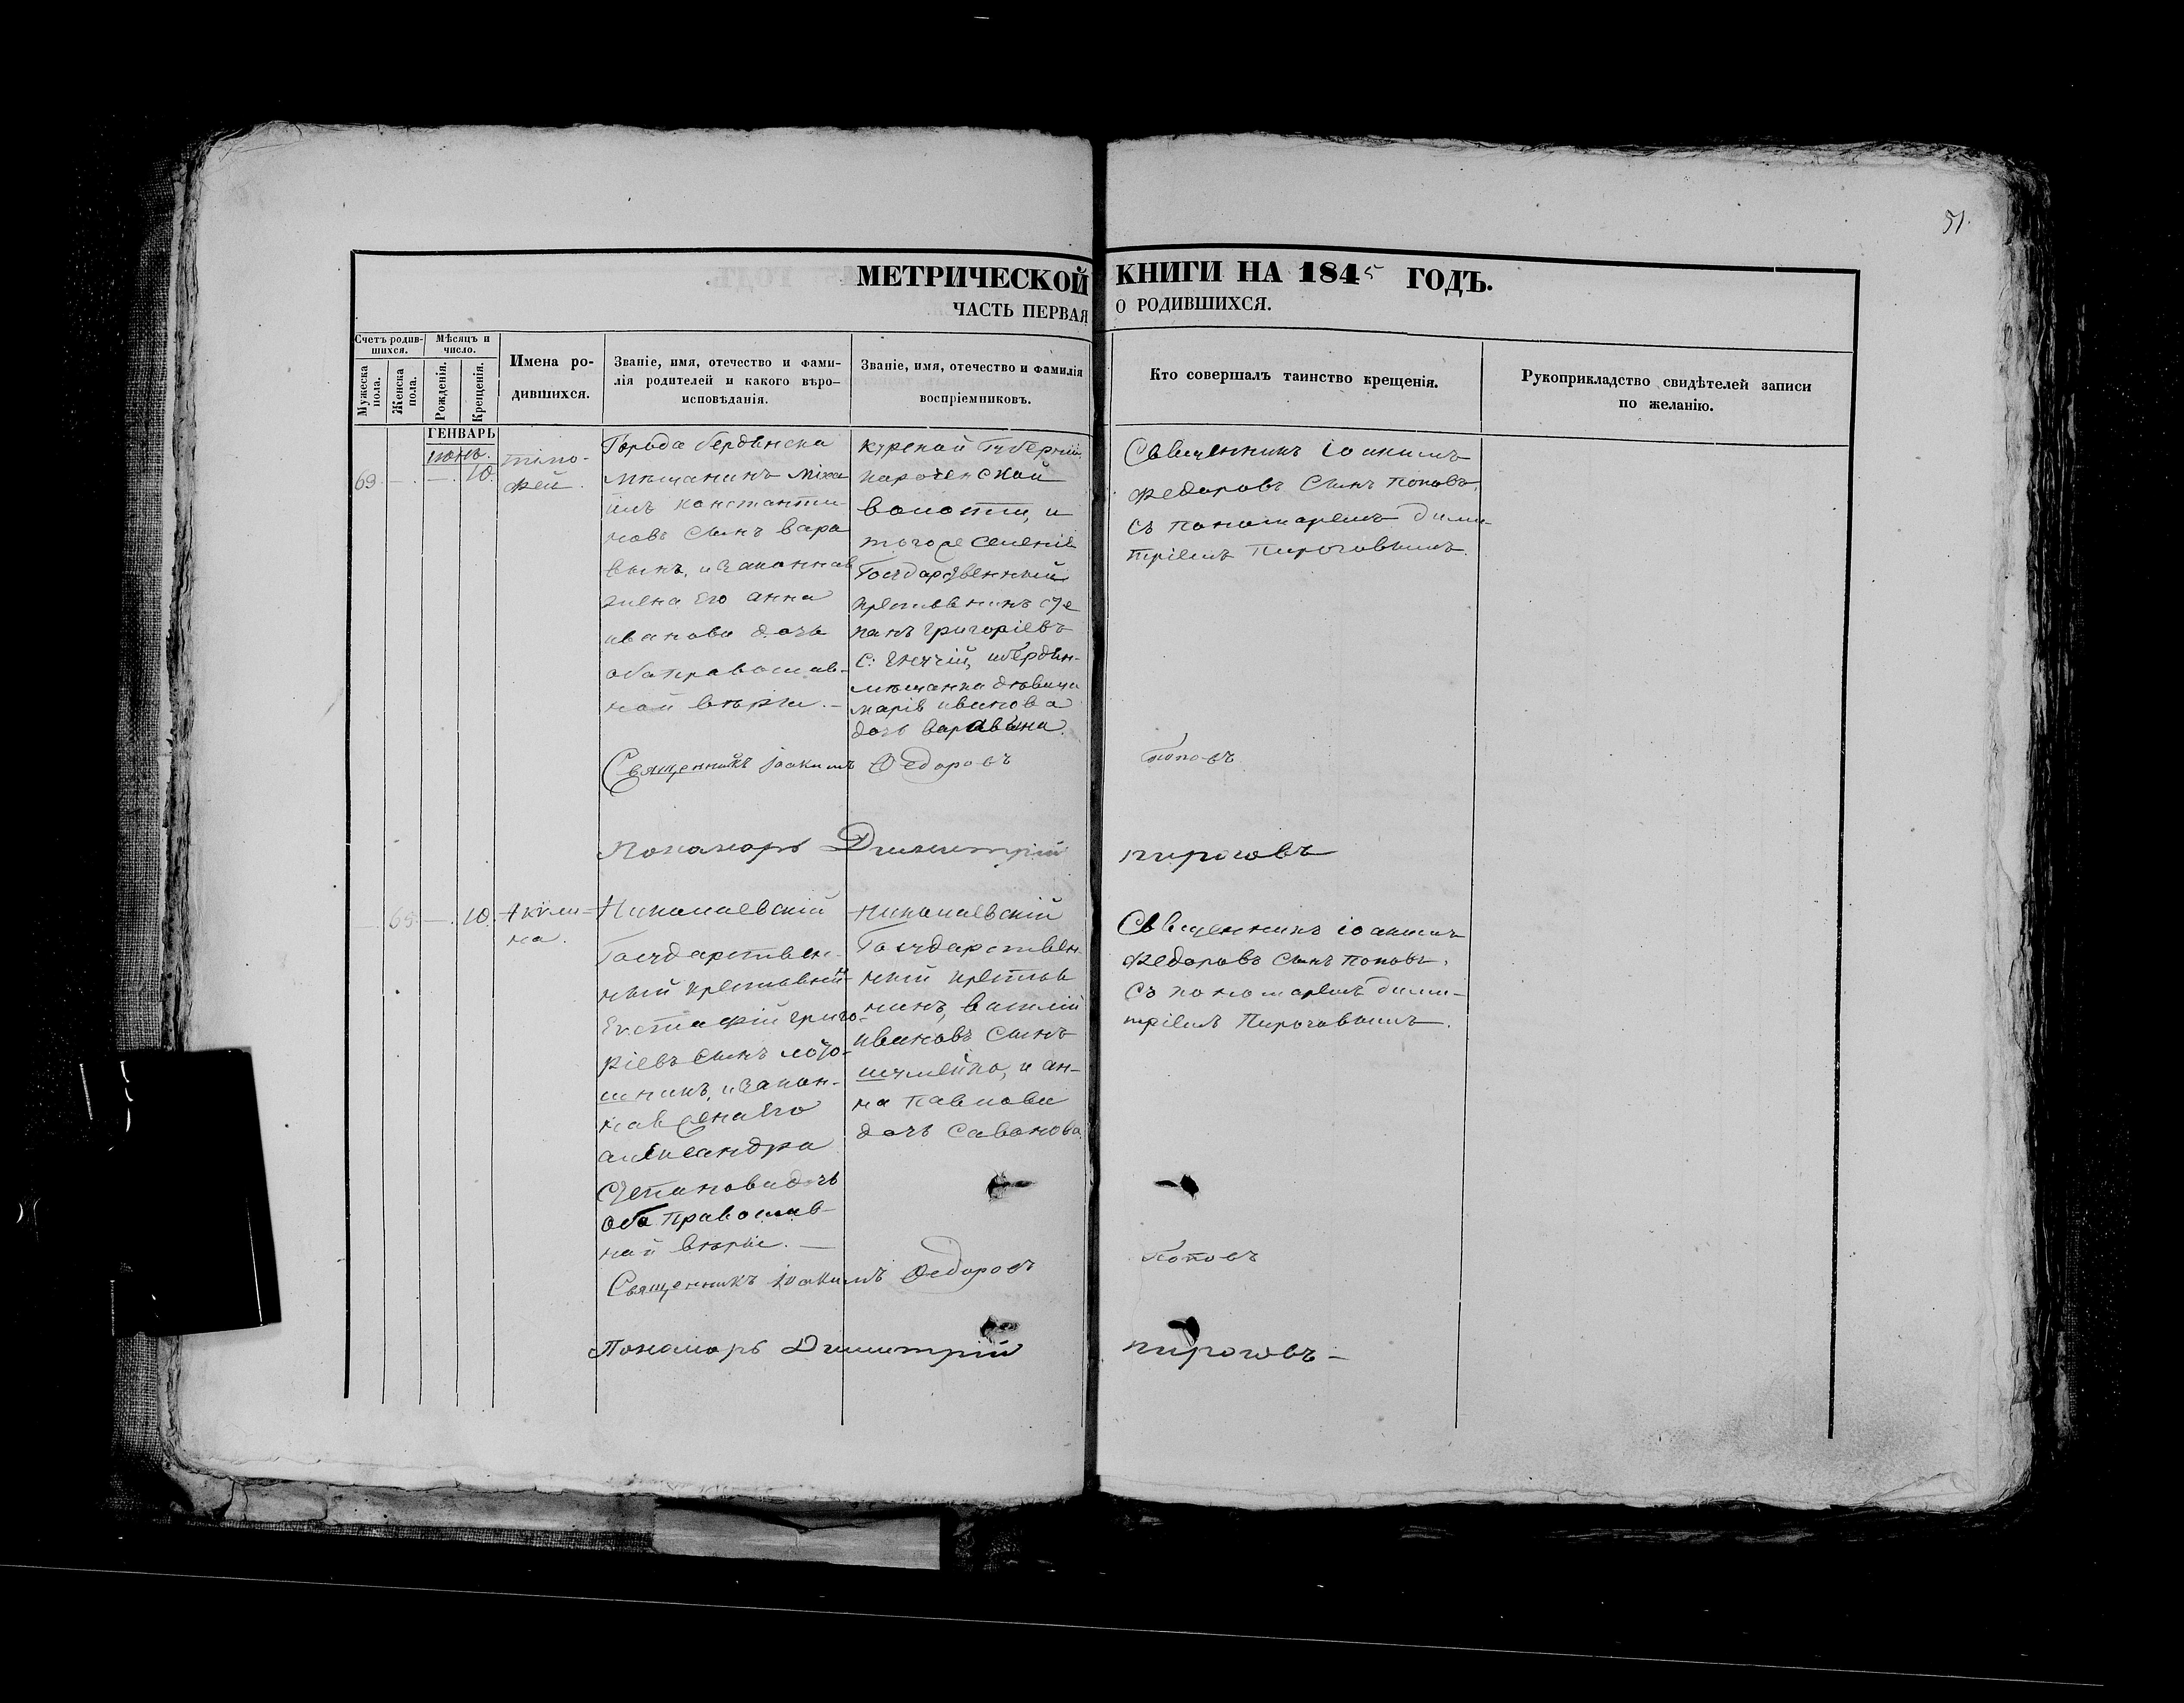 51.
МЕТРИЧЕСКОЙ КНИГИ НА 1845 ГОДЪ.
ЧАСТЬ ПЕРВАЯ О РОДИВШИХСЯ.
Счетъ родив-
шихся.
Мужеска
пола.
Женска
пола.
Мѣсяцъ и
число.
Рожденія.
Крещенія.
Имена ро-
дившихся.
Званіе, имя, отечество и фами-
лія родителей и какого вѣро-
исповѣданія.
Званіе, имя, отечество и фамилія
воспріемниковъ.
Кто совершалъ таинство крещенія.
Рукоприкладство свидѣтелей записи
по желанію.
ГЕНВАРЬ
69. — . — . 10.
тімо-
фей.
Города бердянска
мѣщанинъ міха
илъ константи-
новъ сынъ вара
вынъ, и законнав
жена его анна
иванова дочь
оба православ-
ной вѣры. —
курской губерніи
волости, и
тогоже селенія
Государственный
крестьянинъ сте
панъ григоріевъ
мѣщанка дѣвица
марія иванова
дочь варавына.
Священникъ іоакимъ
федоровъ сынъ поповъ.
съ пономаремъ дими-
тріемъ Пироговымъ.
Священникъ Іоакимъ Федоровъ поповъ
Пономарь Димитрій пироговъ
— . 65. — . 10.
Акили-
на.
Николаевскій
Государствен-
ный крестьянин
Евстафій григо
ріевъ сынъ
и закон-
нав жена его
александра
Степанова дочь
оба Православ-
ной вѣры. —
Николаевскій
Государствен-
ный крестья
нинъ, василій
ивановъ сынъ
шумейко, и ан-
на павлова
дочь Савонова.
Священникъ іоакимъ
федоровъ сынъ поповъ,
съ пономаремъ дими-
тріемъ Пироговымъ.
Священникъ Іоакимъ Федоровъ поповъ
Пономарь Димитрій пироговъ —